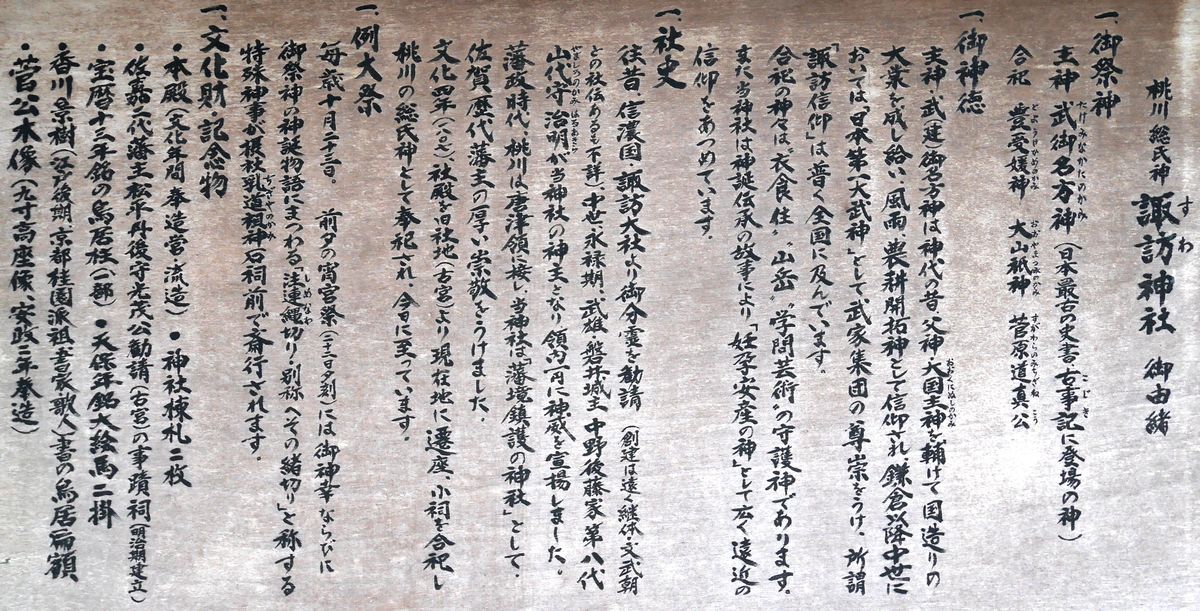 桃川総氏神 諏訪神社 御由緒
すわ
一、御祭神
主神 武御名方神(日本最古の史書「古事記」に登場の神)
たけみなかたのかみ こじき
合祀 豊受媛神 大山祇神 菅原道真公
とようけひめのかみ おおやまづみのかみ すがわらのみちざねこう
一、御神徳
主神・武建御名方神は神代の昔、父神・大国主神を輔けて国造りの
おおくにぬしのかみ
大業を成し給い、風雨、農耕開拓神として信仰され、鎌倉以降中世に
おいては「日本第一大武神」として武家集団の尊崇をうけ、所謂
「諏訪信仰」は普く全国に及んでいます。
合祀の神々は、“衣食住”“山岳”“学問芸術”の守護神であります。
また当神社は神誕伝承の故事により「妊孕・安産の神」として広く遠近の
信仰をあつめています。
一、社史
往昔、信濃国・諏訪大社より御分霊を勧請(創建は遠く継体・文武朝
との社伝あるも不詳)、中世・永禄期、武雄・磐井城主、中野後藤家第八代
山代守治明が当神社の神主となり領内一円に神威を宣揚しました。
やましろのかみはるあき
藩政時代、桃川は唐津領に接し当神社は「藩境鎮護の神社」として、
佐賀歴代藩主の厚い崇敬をうけました。
文化四年(一八〇七)、社殿を旧社地(古宮)より現在地に遷座、小祠を合祀し
桃川の総氏神として奉祀され、今日に至っています。
一、例大祭
毎歳十月二十三日。 前夕の宵宮祭(二十二日夕刻)には御神幸ならびに
御祭神の神誕物語にまつわる「注連縄切り・別称へその緒切り」と称する
しめなわ
特殊神事が摂社乳道祖神石祠前で斎行されます。
ちちさやのかみ
一、文化財・記念物
・本殿(文化年間奉造営・流造) ・神社棟札二枚
・佐嘉二代藩主松平丹後守光茂公勧請(古宮)の事蹟祠(明治期建立)
・宝暦十三年銘の鳥居柱(一部) ・天保年銘大絵馬二掛
・香川景樹(江戸後期、京都桂園派祖・吾家歌人)書の鳥居扁額
・菅公木像(九寸高座像、安政二年奉造)